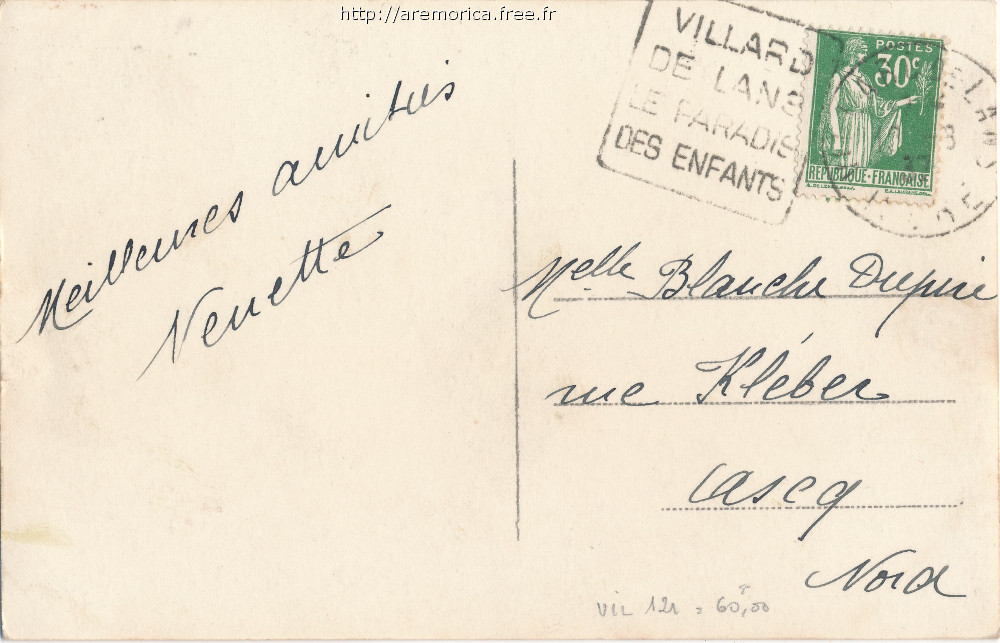 http://aremorica.free.fr
VILLARD
DE LANS
LE PARADIS
DES ENFANTS
POSTES
30c
REPUBLIQUE·FRANÇAISE
Meilleures amitiés
Nenette
Melle Blanche Dupire
rue Kléber
Ascq
Nord